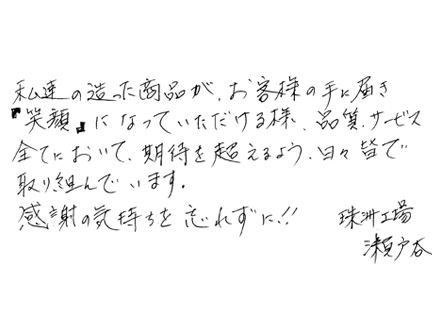 私達の造った商品が、お客様の手に届き
『笑顔』になっていただける様、品質、サービス
全てにおいて、期待を超えるよう、日々皆で
取り組んでいます。
感謝の気持ちを忘れずに!! 珠洲工場
瀬戸谷